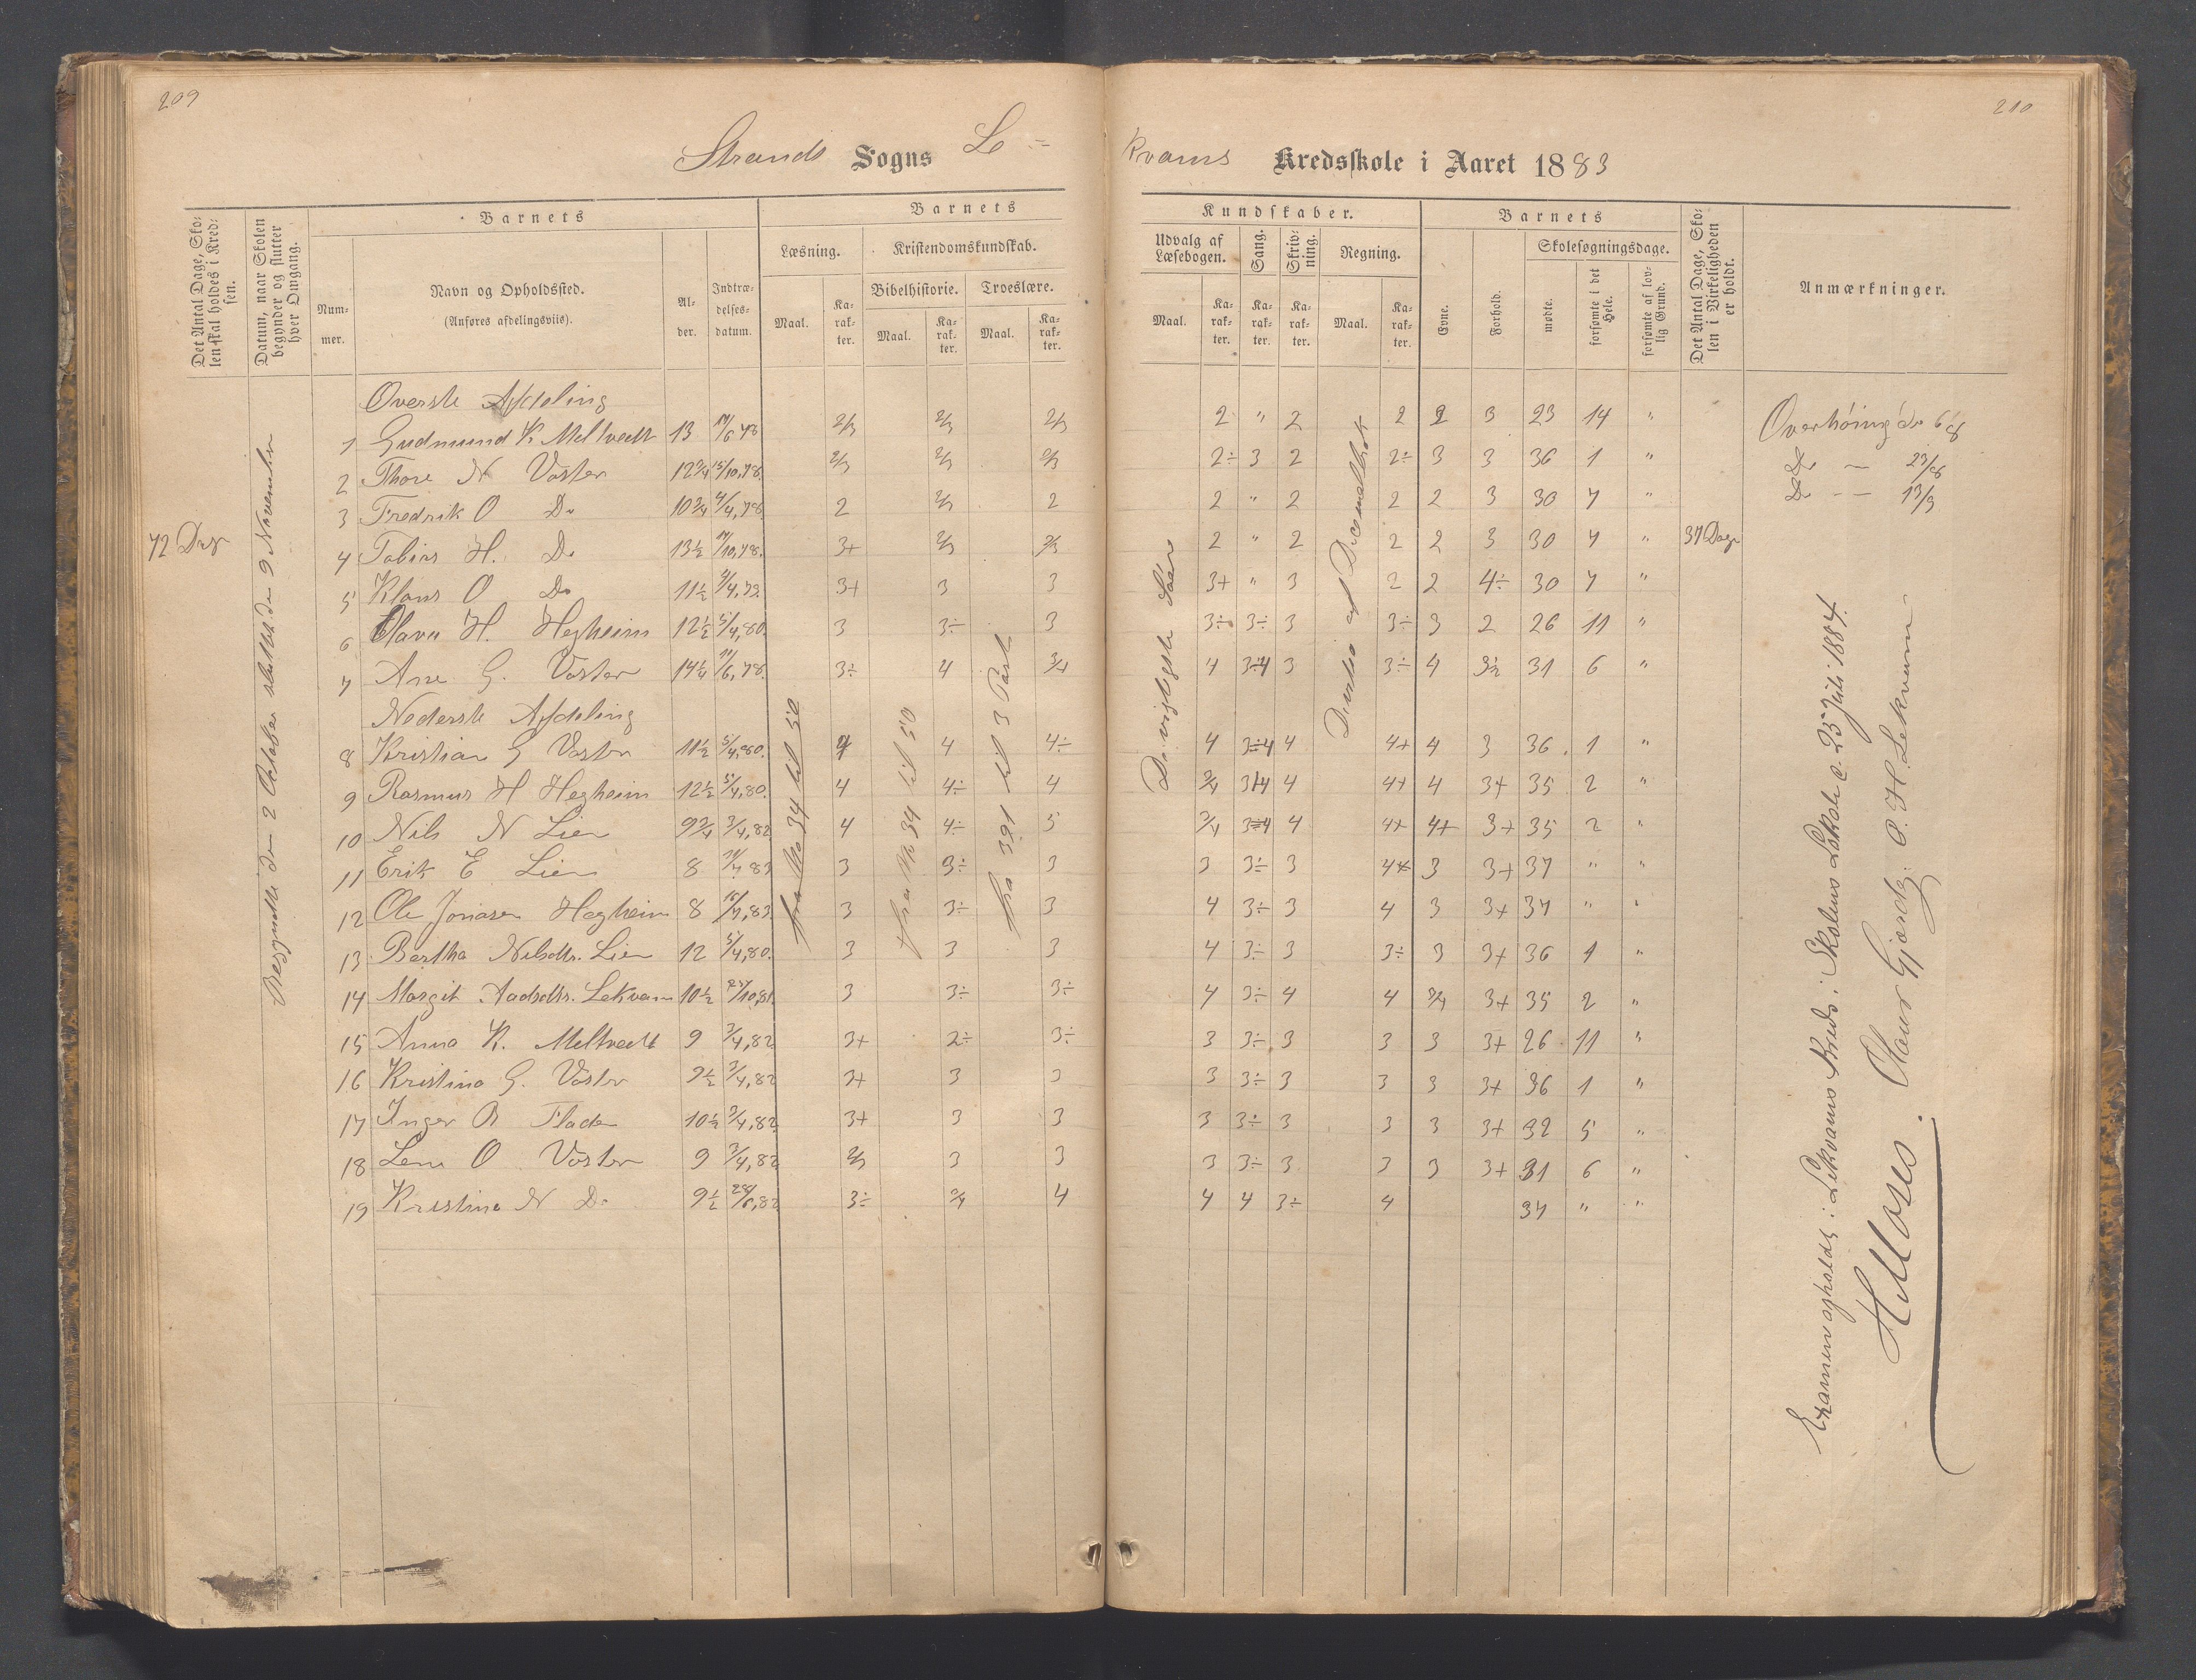 209
210
Strands Sogns Le=
Kvams Kredsskole i Aaret 1883
Det Antal Dage, Skolen skal holdes i Kredsen.
Datum, naar Skolen begynder og slutter hver Omgang.
Barnets
Nummer.
Navn og Opholdssted.
(Anføres afdelingsviis).
Alder.
Indtrædelsesdatum.
Barnets
Læsning.
Kristendomskundskab.
Bibelhistorie. Troeslære.
Maal. Karakter. Maal. Karakter. Maal. Karakter.
Kundskaber.
Udvalg af Læsebogen. Sang. Skrivning. Regning.
Maal. Karakter. Karakter. Karakter. Maal. Karakter.
Barnets
Evne. Forhold. Skolesøgningsdage.
mødte. forsømte i det Hele. forsømte af lovlig Grund.
Det Antal Dage, Skolen i Virkeligheden er holdt.
Anmærkninger.
72 Dage
Begyndte den 2 October sluttet den 9 November
Øverste Afdeling
1 Gudmund K. Meltvedt 13 2/3 2/3 2/3 2 " 2 2 2 3 23 14 "
2 Thore N Voster 12 3/4 15/10,78. 2/3 2/3 2/3 2÷ 3 2 2÷ 3 3 36 1 "
3 Fredrik O Do 10 3/4 4/4,78. 2 2/3 2 2 " 2 2 2 3 30 7 "
4 Tobias H. Do 13 1/2 3+ 2/3 2/3 2 " 2 2 2 3 30 7 " 37 Dage
5 Klaus O Do 11 1/2 3+ 3 3 3+ " 3 2 2 4÷ 30 7 "
6 Olava H. Hegheim 12 1/2 5/4,80. 3 3÷ 3 3÷ 3÷ 3 3÷ 3 2 26 11 "
7 Ane G. Voster 14 1/4 3÷ 4 3/4 4 3÷4 3 3÷ 4 31 6 "
Nederste Afdeling
8 Kristian G Voster 11 1/2 5/4,80. 4 4 4÷ 4 3÷4 4 4+ 4 3 36 1 "
9 Rasmus H Hegheim 12 1/2 5/4,80. 4 4÷ 4 3/4 4 4+ 4 3+ 35 2 "
10 Nils N Lien 9 3/4 3/4,82 4 4÷ 5 3/4 3÷4 4 4+ 4+ 3+ 35 2 "
11 Erik E Lien 8 3 3÷ 3 3 3÷ 3 3 3+ 37 " "
12 Ole Jonasen Hegheim 8 3 3÷ 3 4 3÷ 3 4 3 3+ 37 " "
13 Bertha Nilsdtr. Lien 12 5/4,80. 3 3 3 4 3÷ 3 3÷ 3 3+ 36 1 "
14 Margit Aadsdtr. Lekvam 10 1/2 3 3÷ 3÷ 4 3÷ 4 4 3/4 3+ 35 2 "
15 Anna K. Meltvedt 9 3/4,82 3+ 2÷ 3÷ 3 3÷ 3 3 3 3+ 26 11 "
16 Kristina G. Voster 9 1/2 3/4,82 3+ 3 3 3 3÷ 3 3 3 3+ 36 1 "
17 Inger B Flade 10 1/2 3/4,82 3+ 3 3 3 3÷ 3 3 3 3+ 32 5 "
18 Lena O Voster 9 3/4,82 2/3 3 3 3 3÷ 3 3 3 3+ 31 6 "
19 Kristine N Do 9 1/2 28/6,82 3÷ 3/4 4 4 4 3÷ 4 37 " "
fra No 34 til 50
fra No 34 til 50
fra 391 til 3 Part
De vigtigste
Overhøring do 6/8
Do — 23/8
Do — 13/9
Examen afholdt i Lekvams Kreds i Skolens Lokale d. 25 Juli 1884.
Olaus Gjærde. O. H. Lekvam
H. Moses.